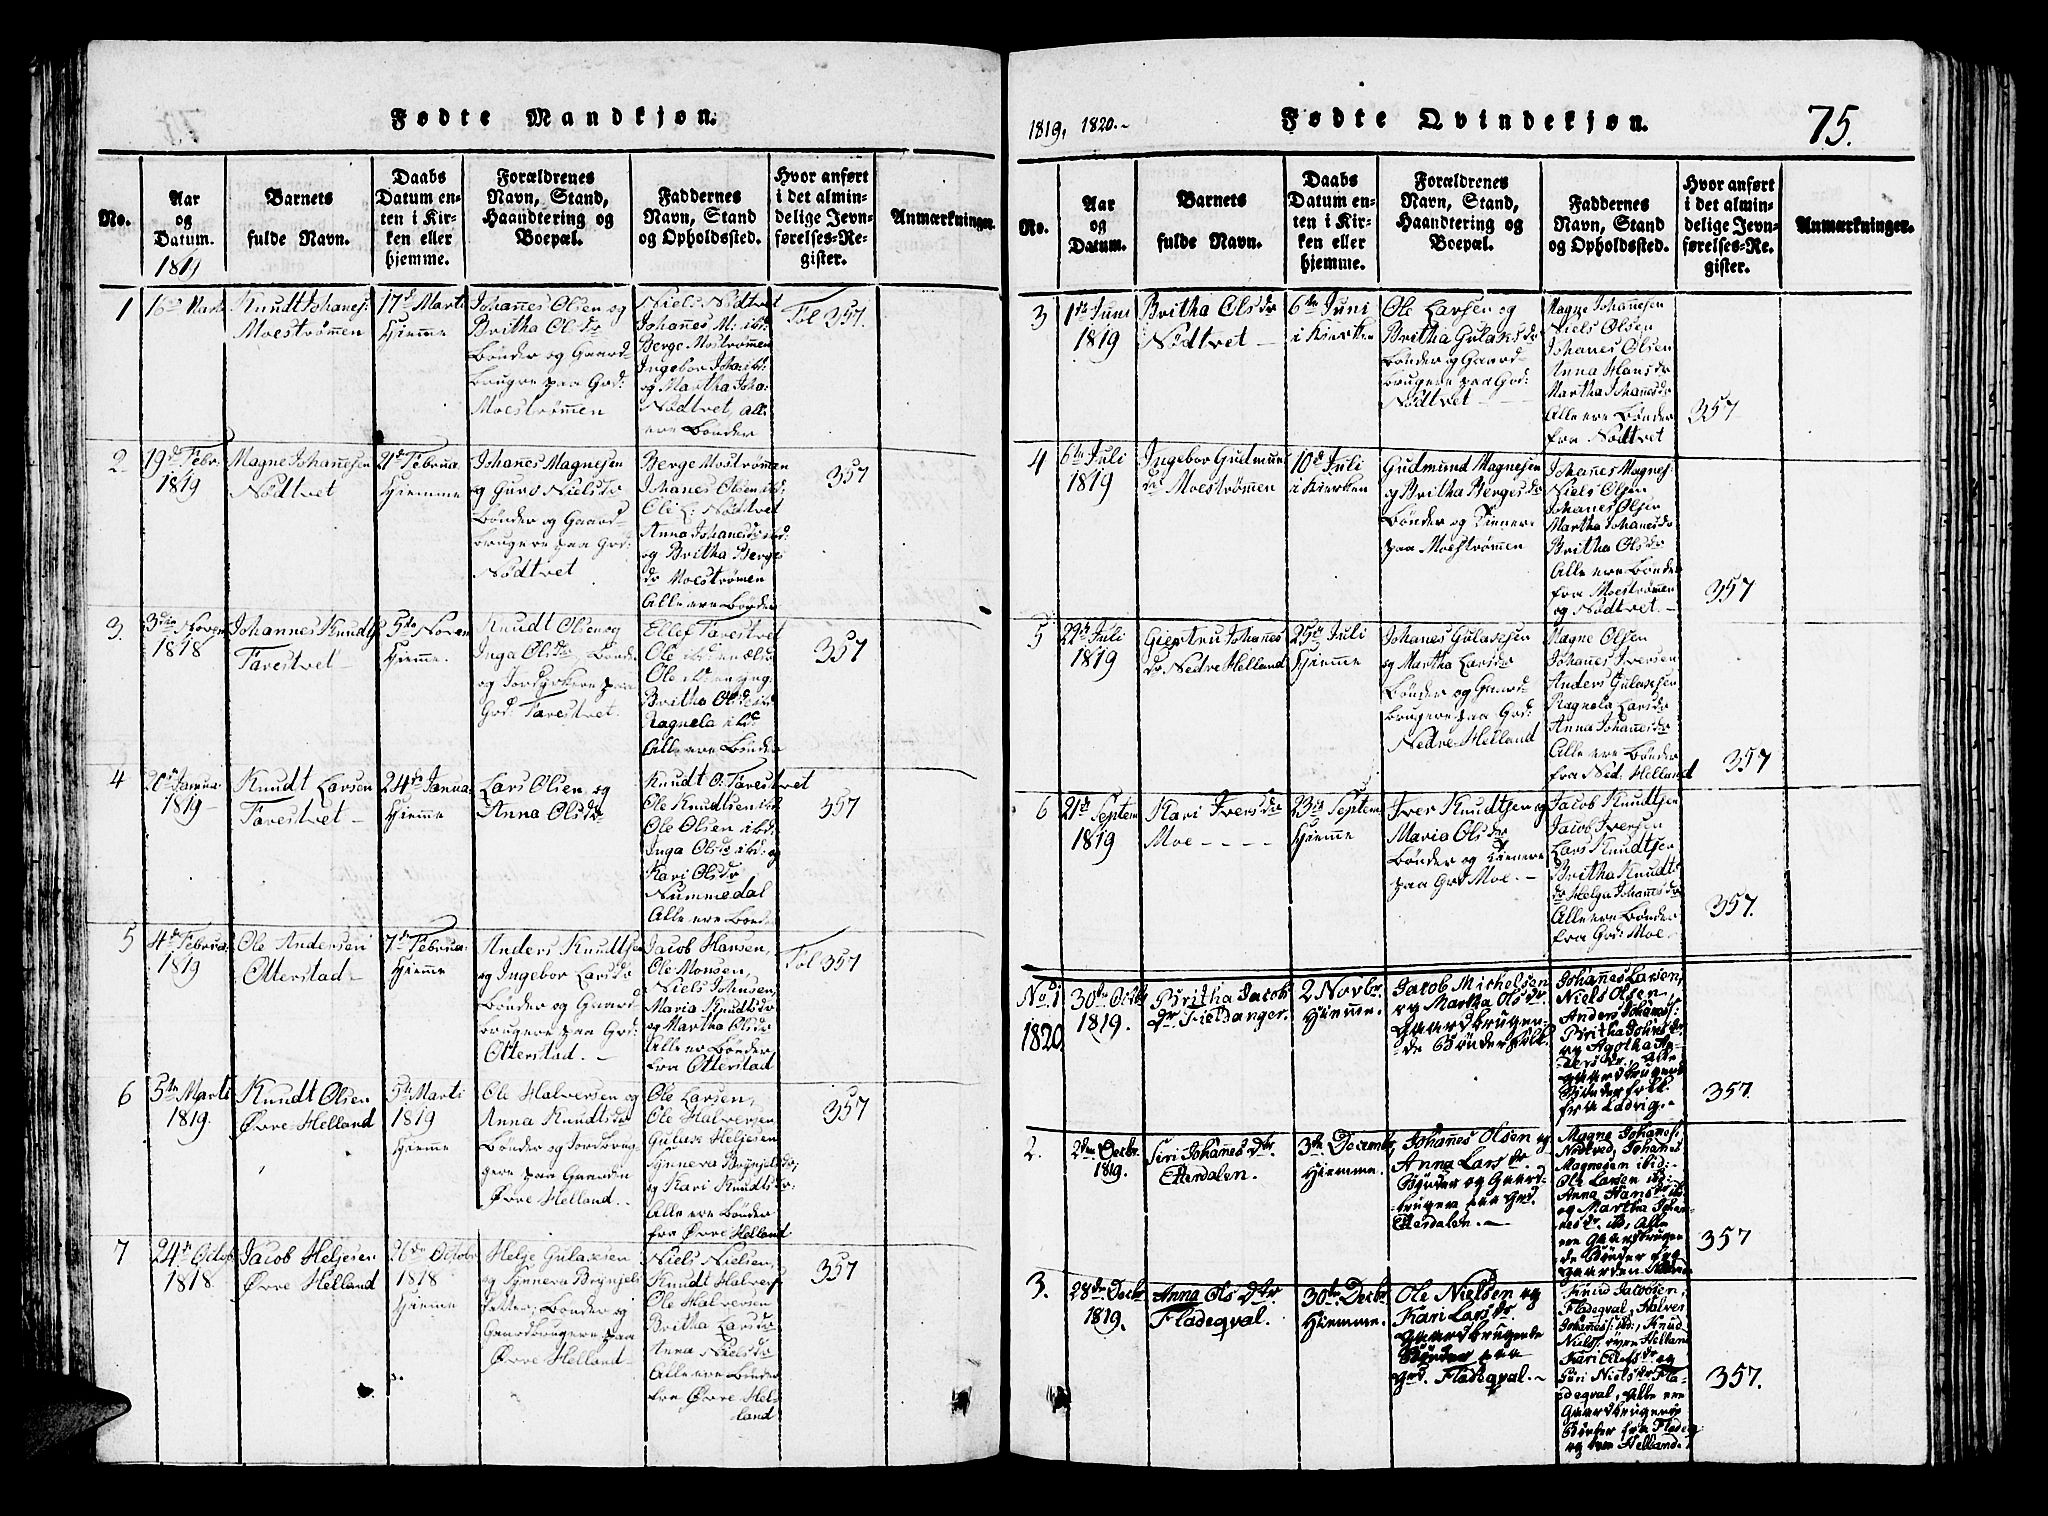 Fødte Mandkjøn.
No.
Aar
og
Datum.
1819
Barnets
fulde Navn.
Daabs
Datum en-
ten i Kir-
ken eller
hjemme.
Forældrenes
Navn, Stand,
Haandtering og
Boepæl.
Faddernes
Navn, Stand
og Opholdssted.
Hvor anført
i det almin-
delige Jevn-
førelses-Re-
gister.
Anmærkninger.
1
16de Marti
Knudt Johanes:
Moestrømmen
17de Marti
Hiemme
Johañes Olsen og
Britha Olsdr
Bønder og Gaard-
brugere paa Grd:
Moestrømen
Niels Nødtvet
Johañes M: ibd:
Berge Mostrømmen
Ingebor Joha: ibd:
og Martha Joha:
Nødtvet, alle
ere Bønder
Fol 357.
2
19de Febr:
1819
Magne Johañesen
Nødtvet
21de Februa:
Hiemme
Johañes Magnesen
og Guro Nielsdr
Bønder og Gaard-
brugere paa Grd:
Nødtvet
Berge Mostrømen
Johanes Olsen ibd:
Ole L: Nødtvet
Anna Johanesdr ibd:
og Britha Berges
dr Moestrømen
Alle ere Bønder
357
3.
3die Noven
1818
Johannes Knudts:
Tarestvet
5te Noven
Hiemme.
Knudt Olsen og
Inga Olsdr, Bønder
og Jordyrkere paa
Grd: Tarestvet.
Ellef Tarestvet
Ole ibd:
Ole ibd:
Britha Ols: ibd:
Ragnela ibd:
Alle ere Bønder
357
4
20de Janua
1819
Knudt Larsen
Tarestvet
24de Janua:
Hiemme
Lars Olsen, og
Anna Olsdr
Knudt O: Tarestvet
Ole Knudtsen ibd:
Ole Olsen ibd:
Inga Olsdr ibd: og
Kari Olsdr
Nummedal
Alle ere Bønder
357
5
4de Februa:
1819
Ole Andersen
Otterstad
7de Februa:
Hiemme
Anders Knudtsen
og Ingebor Larsdr
Bønder og Gaard-
brugere paa Grd:
Otterstad.
Jacob Hansen,
Ole Monsen,
Niels Johnsen,
Maria Knudtsdr
og Martha Olsdr
Alle er Bønder
fra Otterstad
Fol 357
6
5te Marti
1819.
Knudt Olsen
Øvre Helland
5te Marti
1819
Hiemme
Ole Halversen og
Anna Knudtsdr
Bønder og Jordbru-
gere paa Gaarden
Øvre Helland.
Ole Larsen,
Ole Halversen
Gulave Heljesen
Synneva Brynjelsdr,
og Kari Knudtsdr:
Alle ere Bønder
fra Øvre Helland
357
7
24de Octob
1818
Jacob Heljesen
Øvre Helland
26de October
1818
Hiemme
Helje Gulavsen
og Synneva Brynjels
datter, Bønder og
Gaardbrugere paa
Øvre Helland
Niels Nielsen,
Knudt Halvers:
Ole Halversen
Britha Larsdr
Anna Nielsdr
Alle ere Bønder
fra Øvre Hel-
land
357
1819, 1820.
Fødte Qvindekjøn.
75.
No.
Aar
og
Datum.
Barnets
fulde Navn.
Daabs
Datum en-
ten i Kir-
ken eller
hjemme.
Forældrenes
Navn, Stand,
Haandtering og
Boepæl.
Faddernes
Navn, Stand
og Opholdssted.
Hvor anført
i det almin-
delige Jevn-
førelses-Re-
gister.
Anmærkninger.
3
1ste Juni
1819
Britha Olsdr
Nødtvet
6te Juni
i Kirken
Ole Larsen og
Britha Gulaksdr
Bønder og Gaard-
brugere paa Grd:
Nødtvet
Magne Johañesen
Niels Olsen
Johañes Olsen
Anna Hansdr
Martha Johañesdr
Alle ere Bønder
fra Nødtvet
357
4
6te Juli
1819
Ingebor Gudmun
dr Moestrømen
10de Juli
i Kirken
Gudmund Magnesen
og Britha Bergesdr
Bønder og Tienere
paa Moestrømen
Johañes Magnes:
Niels Olsen
Johañes Olsen
Martha Johanesdr
Britha Olsdr
Alle ere Bønder
fra Moestrømen
og Nødtvet.
357
5
22de Juli
1819
Giertru Johañes
dr Nedre Helland
25de Juli
Hiemme
Johañes Gulaksen
og Martha Larsdr
Bønder og Gaard-
brugere paa Grd:
Nedre Helland
Magne Olsen
Johañes Iversen
Anders Gulacsen
Ragnela Larsdr
Anna Johañesdr
Alle ere Bønder
fra Ned: Helland
357
6
21de Septem
1819
Kari Iversdr
Moe
23de Septem
Hiemme
Iver Knudtsen og
Maria Olsdr
Bønder og Tienere
paa Grd Moe.
Jacob Knudtsen
Jacob Iversen
Lars Knudtsen
Britha Knudts
dr Helga Johañesdr
Alle ere Bønder
fra Grd: Moe
357.
No 1
1820.
30te Octbr
1819.
Britha Jacobs
dr Fieldanger.
2 Novbr.
Hiemme.
Jacob Michelsen
og Martha Olsdr
gaardbrugen-
de Bønderfolk.
Johañes Larsen,
Niels Olsen
Anders Johañes:
Britha Johnsdr
og Agotha An-
dersdr, Alle
gaardbrugend
Bønderfolk
fra Ladvig.
357.
2.
2den Decbr.
1819.
Siri Johañesdtr
Etterdalen.
3te December,
Hiemme.
Johañes Olsen og
Anna Larsdr
Bønder og Gaard-
brugere paa Grd.
Etterdalen.
Magne Johañes:
Nødtved, Johañes
Magnesen ibid:
Ole Larsen ib:
Anna Hansdr ib:
og Martha Johan-
nesdr. ib, Alle
ere gaardbrugen
de Bønder fra
gaarden
357
3.
28de Decbr
1819.
Anna Olsdtr
Fladeqval.
30te Decbr.
Hiemme.
Ole Nielsen og
Kari Larsdr
gaardbrugende
Bønder paa
grd. Fladeqval.
Knud Jacobsen,
Fladeqval, Halver
Johañes: ib:, Knud
Niels: øvre Helland
Kari Olesdr og
Siri Nielsdr Fla-
deqval, Alle ere
Gaardbrugere
Bønder fra Fladeq
og Helland.
357.